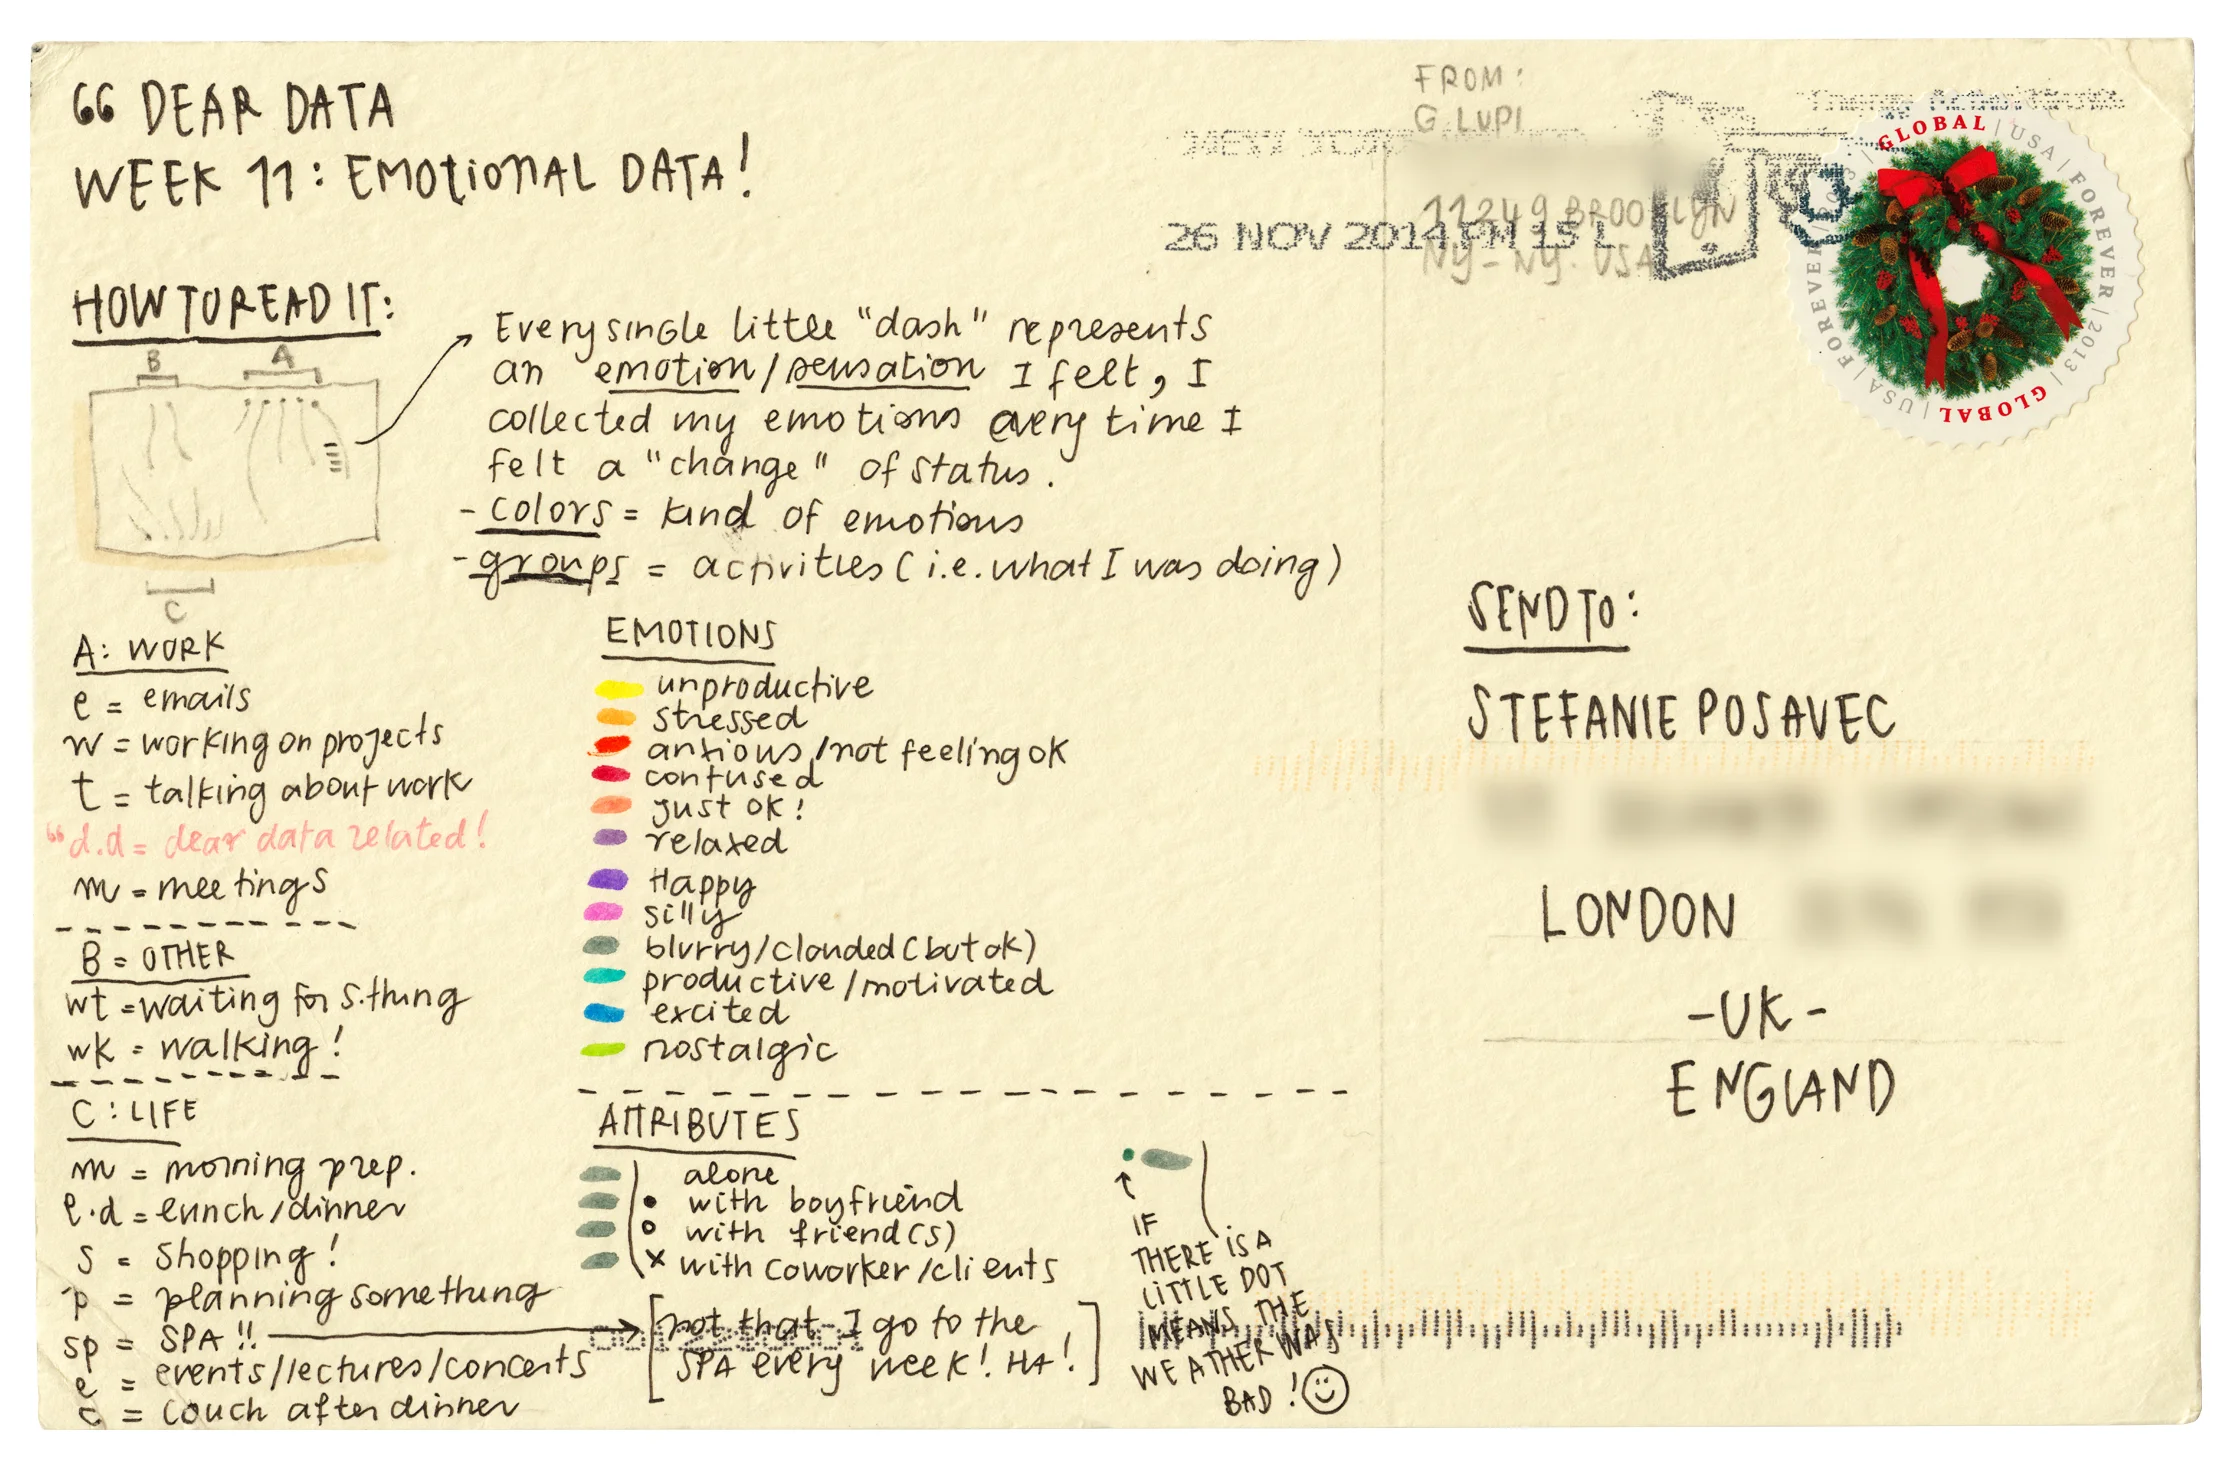 “ DEAR DATA
WEEK 11: EMOTIONAL DATA!
HOW TO READ IT:
B A
C
Every single little "dash" represents
an emotion/sensation I felt, I
collected my emotions every time I
felt a "change" of status.
- colors = kind of emotions
- groups = activities (i.e. what I was doing)
A: WORK
e = emails
w = working on projects
t = talking about work
“d.d = dear data related!
m = meetings
B = OTHER
wt = waiting for s.thing
wk = walking!
C: LIFE
m = morning prep.
l.d = lunch/dinner
s = shopping!
p = planning something
sp = SPA!!
e = events/lectures/concerts
c = couch after dinner
[not that I go to the
SPA every week! HA!]
EMOTIONS
unproductive
stressed
anxious/not feeling ok
confused
just ok!
relaxed
Happy
silly
blurry/clouded (but ok)
productive/motivated
excited
nostalgic
ATTRIBUTES
alone
with boyfriend
with friend(s)
x with coworker/clients
IF
THERE IS A
LITTLE DOT
MEANS THE
WEATHER WAS
BAD!
FROM:
G. LUPI
11249 BROOKLYN
NY - NY. USA
NEW YORK
26 NOV 2014 PM 15 L
GLOBAL | USA | FOREVER | 2013 | GLOBAL | USA | FOREVER | 2013 |
SEND TO:
STEFANIE POSAVEC
LONDON
-UK-
ENGLAND